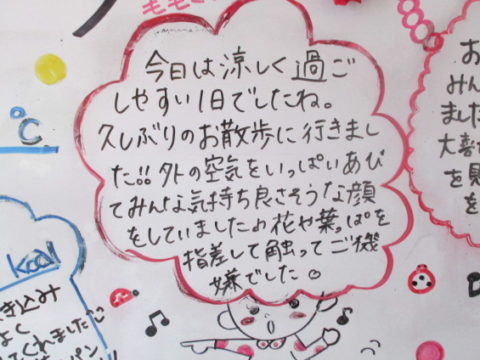 今日は涼しく過ご
しやすい1日でしたね。
久しぶりのお散歩に行きまし
た!!外の空気をいっぱいあび
てみんな気持ち良さそうな顔
をしていました♪花や葉っぱを
指差して触ってご機
嫌でした。
℃
kcal
き込み
よく
くれました
パン
お
みん
ました
大喜
を見
を